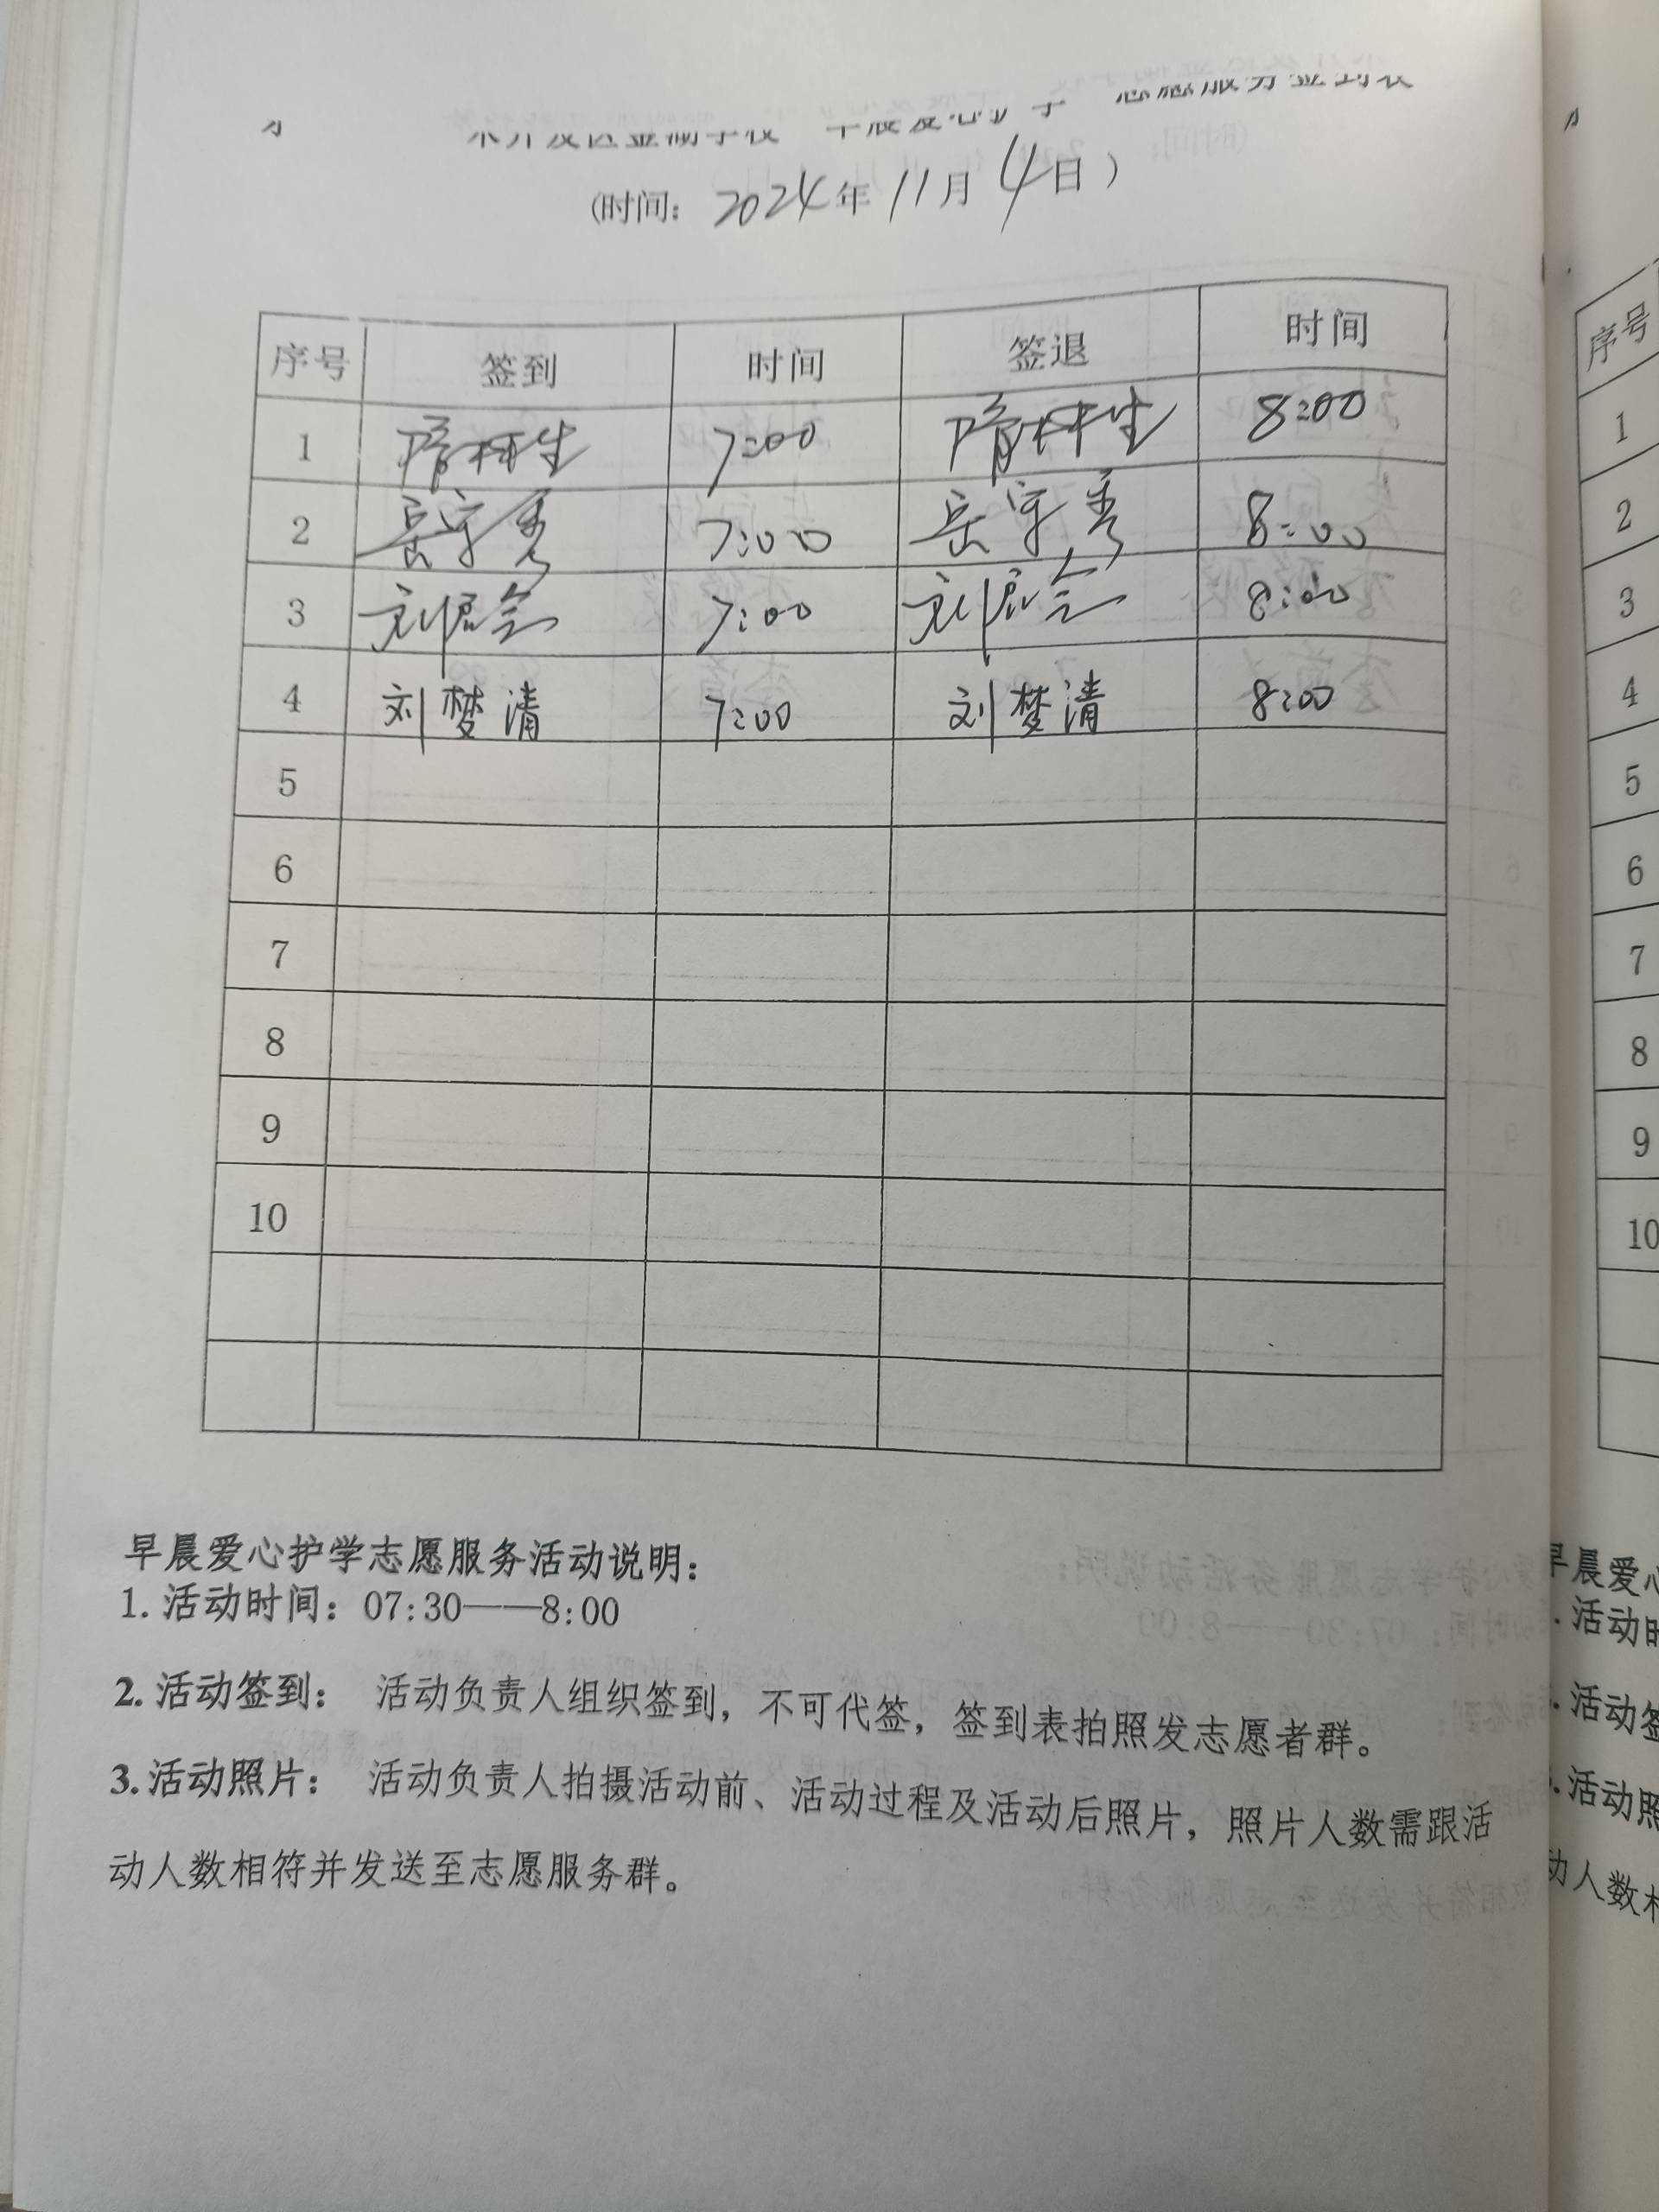 (时间: 2024年11月4日)
序号 签到 时间 签退 时间
1 隋林生 7:00 隋林生 8:00
2 岳守秀 7:00 岳守秀 8:00
3 7:00 8:00
4 刘梦清 7:00 刘梦清 8:00
5
6
7
8
9
10
早晨爱心护学志愿服务活动说明:
1. 活动时间: 07:30——8:00
2. 活动签到: 活动负责人组织签到, 不可代签, 签到表拍照发志愿者群。
3. 活动照片: 活动负责人拍摄活动前、活动过程及活动后照片, 照片人数需跟活
动人数相符并发送至志愿服务群。
序号
1
2
3
4
5
6
7
8
9
10
早晨爱心
活动时
活动签
活动照
动人数相